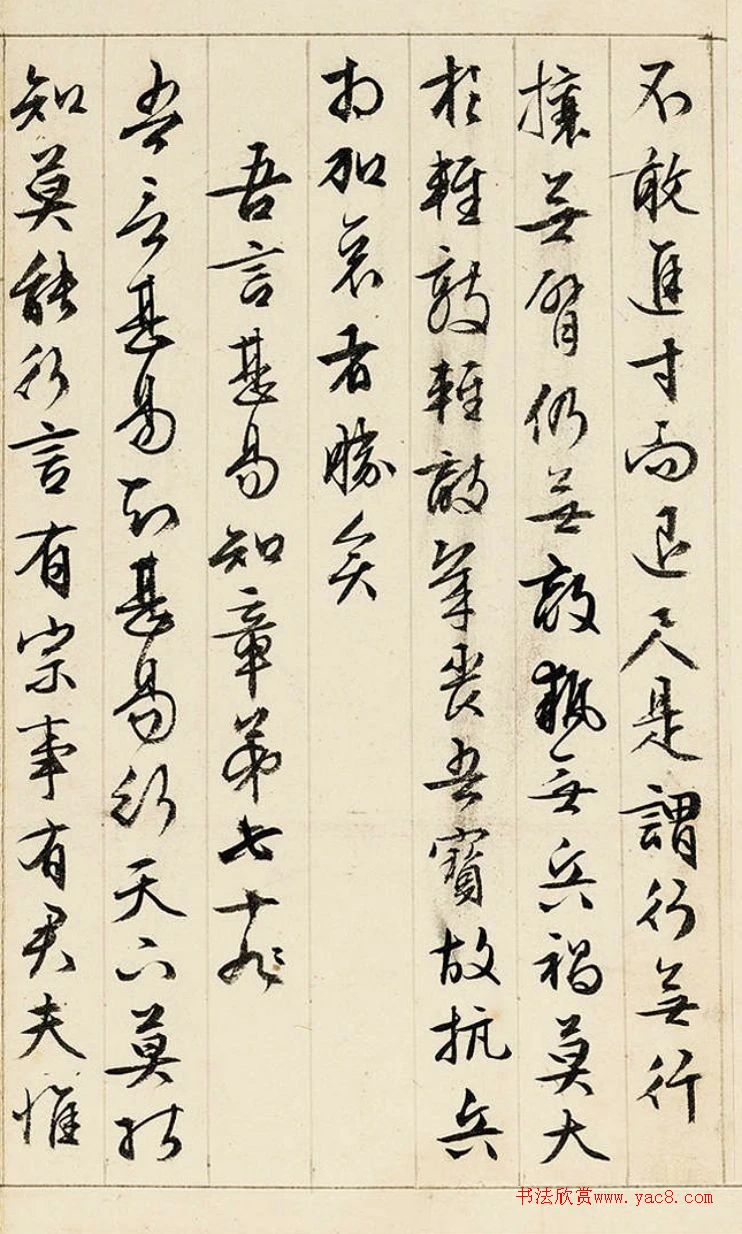 不敢進寸而退尺是謂行無行
攘無臂仍無敵執無兵禍莫大
於輕敵輕敵幾喪吾寶故抗兵
相加哀者勝矣
吾言甚易知章第七十
吾言甚易知甚易行天下莫能
知莫能行言有宗事有君夫惟
书法欣赏www.yac8.com